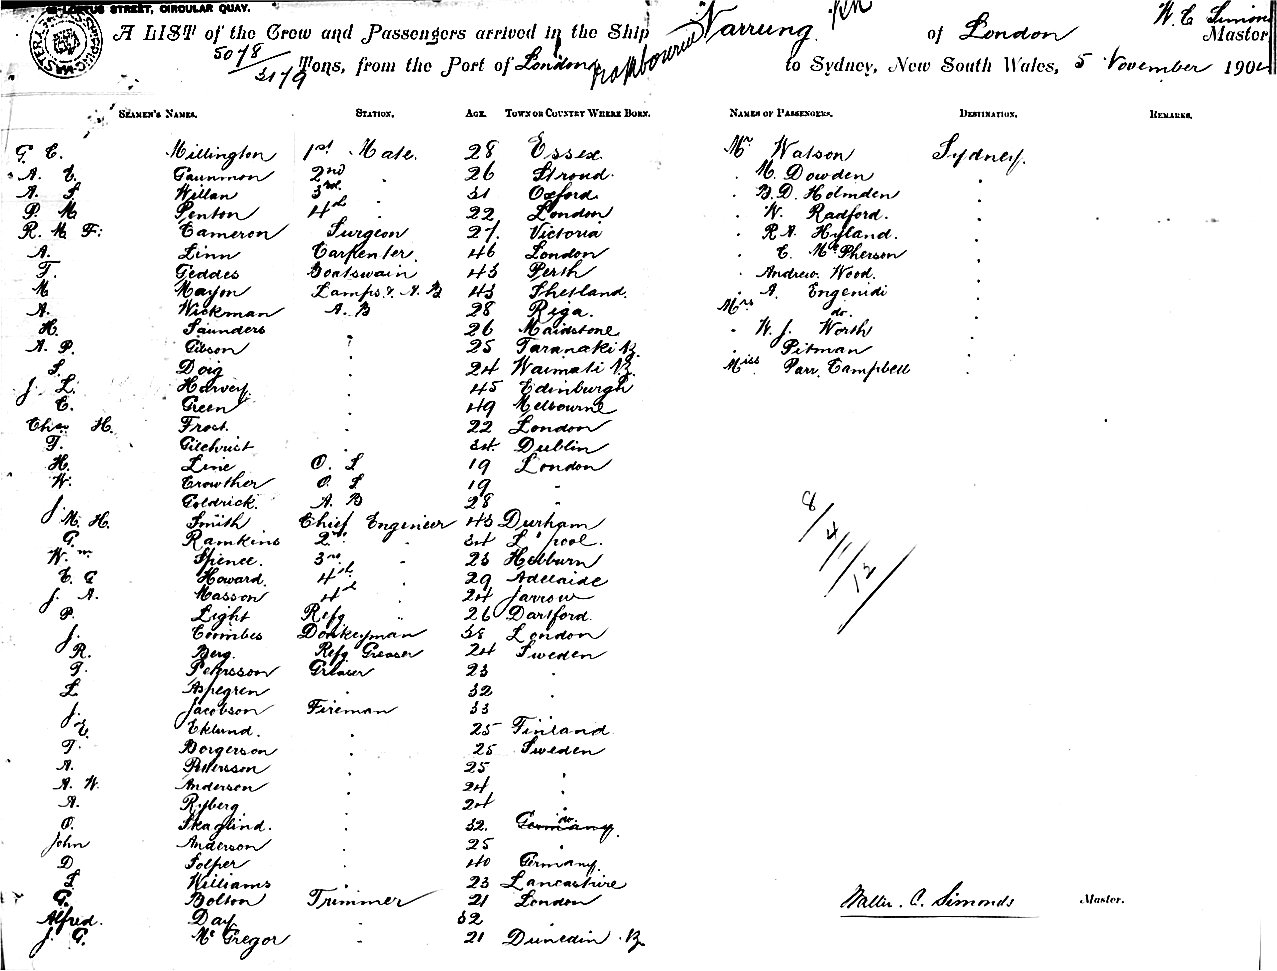 LOFTUS STREET, CIRCULAR QUAY.
A LIST of the Crew and Passengers arrived in the Ship Narrung of London W. C. Simonds Master
5078
3179
Tons, from the Port of London to Sydney, New South Wales, 5 November 190
SEAMEN'S NAMES. STATION. AGE. TOWN OR COUNTRY WHERE BORN. NAMES OF PASSENGERS. DESTINATION. REMARKS.
G. C. Millington 1st Mate. 28 Essex Mr Watson Sydney.
A. E. Gaunmon 2nd " 26 Stroud " M. Dowden "
A. S. Willan 3rd " 31 Oxford " B. D. Holmden "
P. M Penton 4th " 22 London " W. Radford. "
R. M F. Cameron Surgeon 27. Victoria " R A. Hyland. "
A. Linn Carpenter. 46 London " C. McPherson "
T. Geddes Boatswain 43 Perth " Andrew Wood. "
M Mayon Lamps & A. B 43 Shetland. " A. Engenidi "
A. Wickman A. B 28 Riga. Mrs do. "
H. Saunders " 26 Maidstone " W. J. Worth "
A. P. Gibson " 25 Taranaki NZ " Pitman "
S. Doig " 24 Waimati NZ Miss Parr Campbell "
J. L. Harvey " 45 Edinburgh
C. Green " 49 Melbourne
Chas H. Frost " 22 London
T. Gilchrist " 34 Dublin
H. Line O. S 19 London
W. Crowther O. S 19 "
J. Goldrick. A. B 28 "
M. H. Smith Chief Engineer 43 Durham
G. Ramkins 2nd " 34 L'pool.
Wm Spence. 3rd " 23 Hebburn
C. G Howard. 4th " 29 Adelaide
J. A. Masson 4th " 24 Jarrow
P. Light Refg " 26 Dartford.
J. Coombes Donkeyman 38 London
R. Berg. Refg Greaser 24 Sweden
T. Pehrsson Greaser 23 "
L Aspegren " 32 "
J. Jacobson Fireman 33 "
E. Eklund. " 25 Finland
T. Borgerson " 25 Sweden
A. Petersson " 25 "
A. W. Anderson " 24 "
A. Ryberg " 24 "
O. Skaglind. " 32. Germany do
John Anderson " 25 "
D Folper " 40 Germany.
S Williams " 23 Lancashire
G. Bolton Trimmer 21 London
Alfred. Day " 32 "
J. G. McGregor " 21 Dunedin NZ
8/4/1/12
Walter. C. Simonds Master.